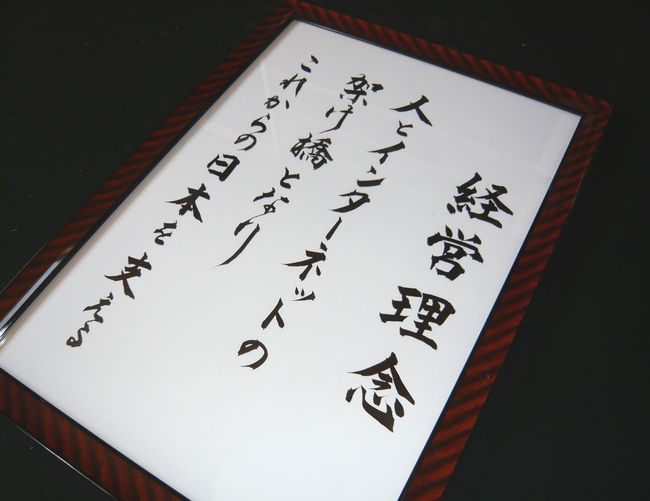 経営理念
人とインターネットの
架け橋となり
これからの日本を支える